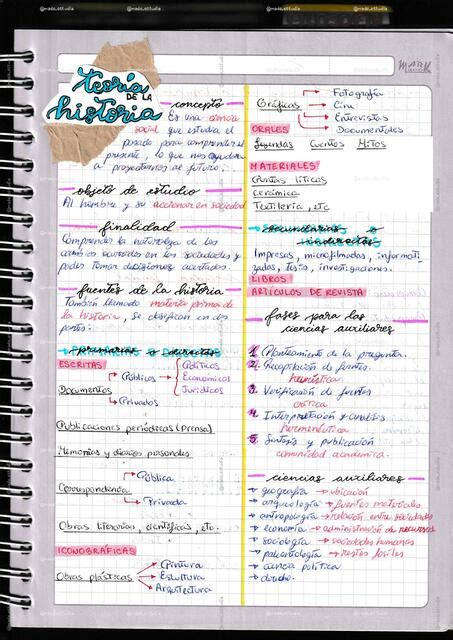 teoría
DE LA
historia
concepto
Es una ciencia
social que estudia el
pasado para comprender el
presente, lo que nos ayudara
a proyectarnos al futuro.
objeto de estudio
Al hombre y su accionar en sociedad
finalidad
Comprender la naturaleza de los
cambios ocurridos en las sociedades y
poder tomar decisiones acertadas.
fuentes de la historia
También llamado materia prima de
la historia, se clasifican en dos
partes:
primarias o directas
ESCRITAS
Documentos
Públicos
Políticos
Económicos
Jurídicos
Privados
Publicaciones periódicas (Prensa)
Memorias y diarios personales
Correspondencia
Pública
Privada
Obras literarias, científicas, etc.
ICONOGRÁFICAS
Obras plásticas
Pintura
Escultura
Arquitectura
MARK
Gráficas
Fotografía
Cine
Entrevistas
Documentales
ORALES
Leyendas Cuentos Mitos
MATERIALES
Puntas líticas
Cerámica
Textilería, etc
secundarias o
indirectas
Impresos, microfilmados, informati-
zados, tesis, investigaciones.
LIBROS
ARTÍCULOS DE REVISTA
fases para las
ciencias auxiliares
1. Planteamiento de la pregunta.
2. Recopilación de fuentes.
heurística
3. Verificación de fuentes
crítica
4. Interpretación y análisis
hermenéutica
5. Síntesis y publicación
comunidad académica.
ciencias auxiliares
→ geografía → ubicación
→ arqueología → fuentes materiales
→ antropología → relación entre sociedades
→ economía → administración de recursos
→ sociología → sociedades humanas
→ paleontología → restos fósiles
→ ciencia política
→ derecho.